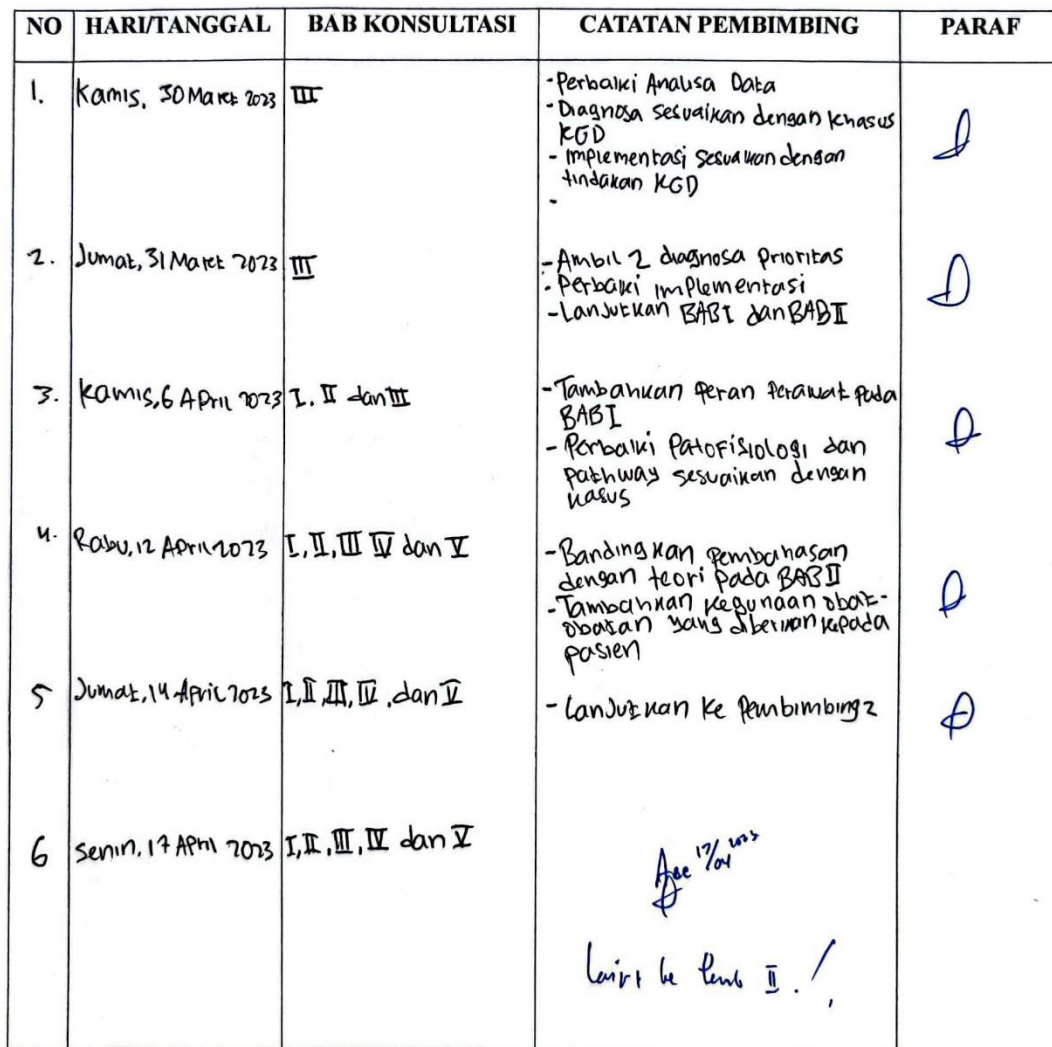 NO HARI/TANGGAL BAB KONSULTASI CATATAN PEMBIMBING PARAF
1. Kamis, 30 Maret 2023 III
- Perbaiki Analisa Data
- Diagnosa sesuaikan dengan khasus
KGD
- implementasi sesuaikan dengan
tindakan KGD
-
2. Jumat, 31 Maret 2023 III
- Ambil 2 diagnosa prioritas
- Perbaiki implementasi
- Lanjutkan BAB I dan BAB II
3. Kamis, 6 April 2023 I, II dan III
- Tambahkan peran perawat pada
BAB I
- Perbaiki Patofisiologi dan
pathway sesuaikan dengan
kasus
4. Rabu, 12 April 2023 I, II, III IV dan V
- Bandingkan pembahasan
dengan teori pada BAB II
- Tambahkan kegunaan obat-
obatan yang diberikan kepada
pasien
5 Jumat, 14 April 2023 I, II, III, IV, dan V
- Lanjutkan ke Pembimbing 2
6 Senin, 17 April 2023 I, II, III, IV dan V
Acc 17/04 2023
Lanjut ke Pemb II. !